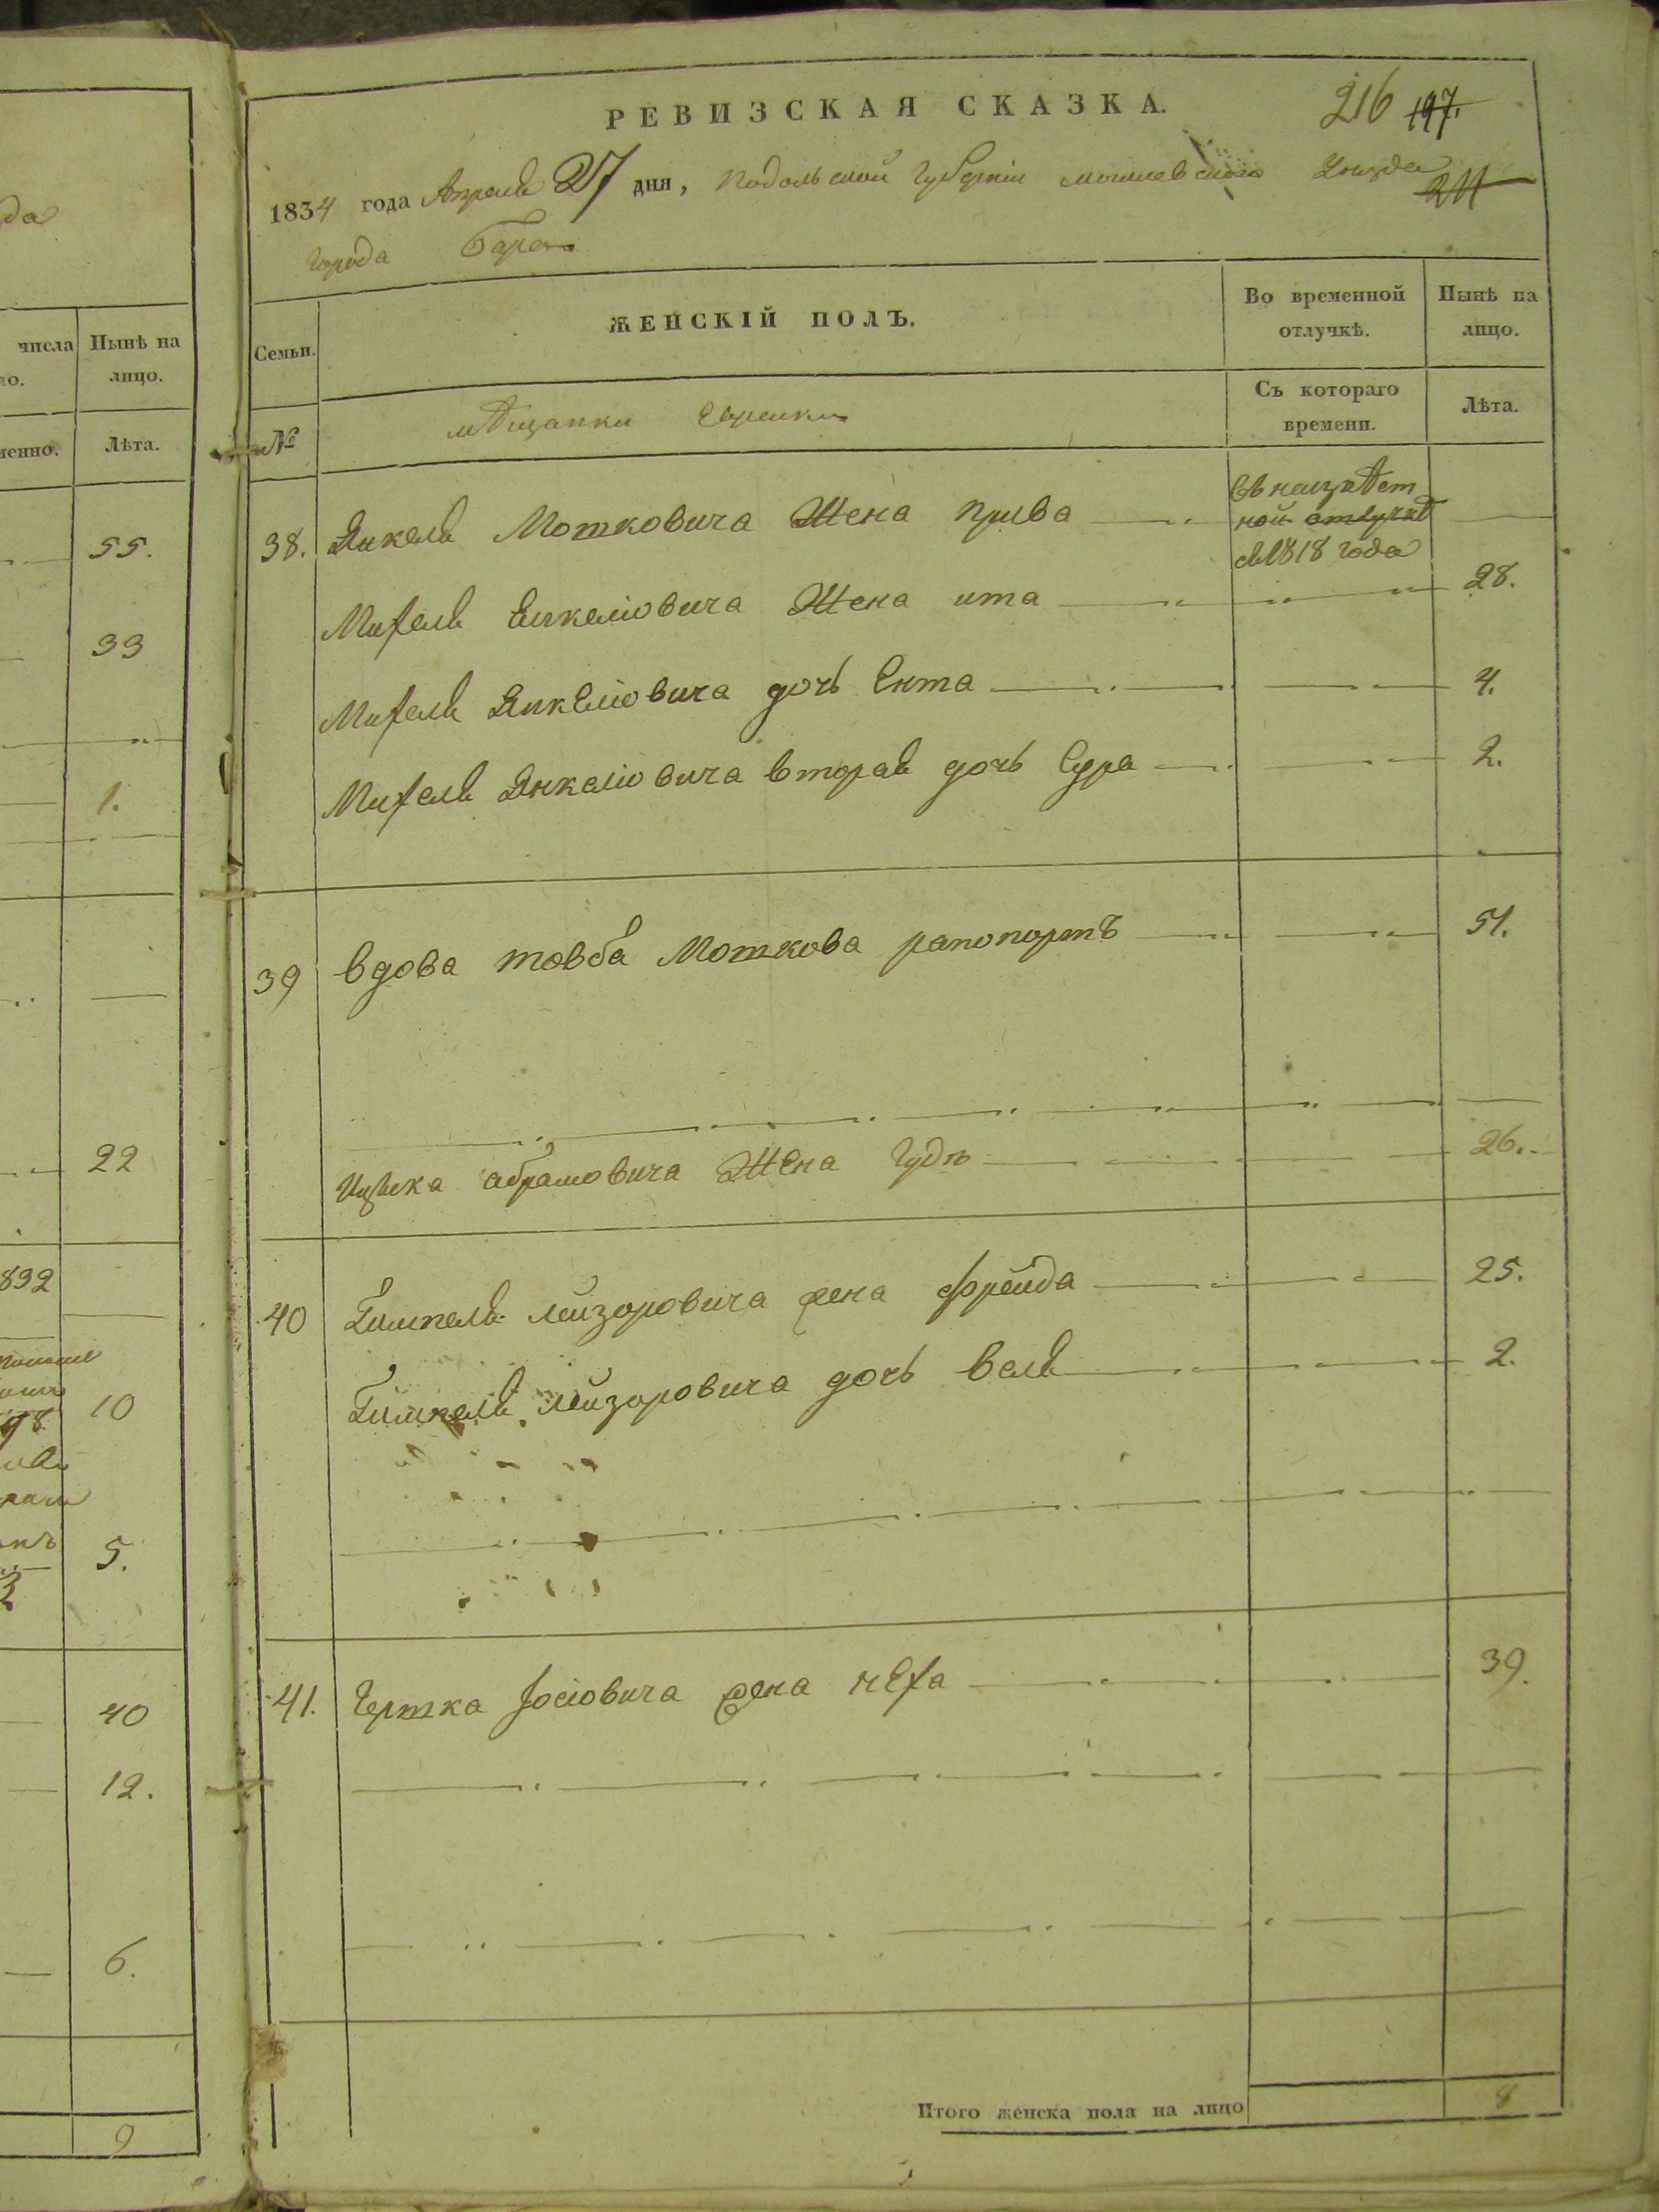 да
числа
Нынѣ на
лицо.
Лѣта.
55.
33
1.
22
832
10
5.
40
12.
6.
9
РЕВИЗСКАЯ СКАЗКА.
216 197.
1834 года Апреля 27 дня, Подольской Губерніи могилевского уѣзда
211
города Бара
Семьи.
ЖЕНСКІЙ ПОЛЪ.
Во временной отлучкѣ.
Нынѣ на лицо.
№
мѣщанки Еврейки
Съ котораго времени.
Лѣта.
38. Янкеля Мотковича Жена Прива
въ неизвѣст
ной отлучкѣ
съ 1818 года
Михеля Енкеліовича Жена ита 28.
Михеля Янкеліовича дочь Ента 4.
Михеля Янкеліовича вторая дочь Сура 2.
39 вдова товба Моткова рапопортъ 51.
Ицька абрамовича Жена Гудя 26.
40 Гимпеля лейзоровича жена фрейда 25.
Гимпеля лейзоровича дочь Бейля 2.
41. Гершка Іосіовича жена неха 39.
Итого женска пола на лицо 8